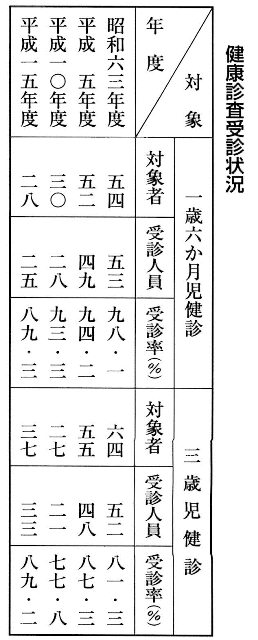 健康診査受診状況
対象 一歳六か月児健診 三歳児健診
年度 対象者 受診人員 受診率(%) 対象者 受診人員 受診率(%)
昭和六三年度 五四 五三 九八・一 六四 五二 八一・三
平成 五年度 五二 四九 九四・二 五五 四八 八七・三
平成一〇年度 三〇 二八 九三・三 二七 二一 七七・八
平成一五年度 二八 二五 八九・三 三七 三三 八九・二